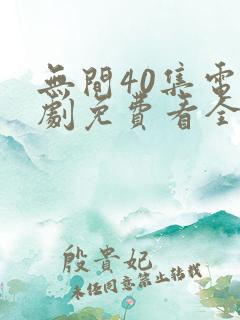 無間40集電
劇免費看全
殷貴妃
未經同意禁止轉載